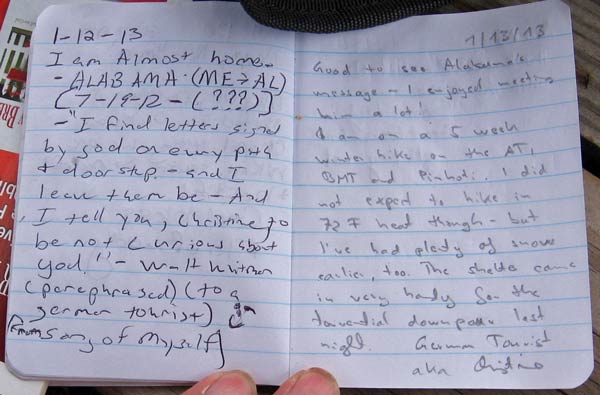 1-12-13
I am Almost home..
- ALABAMA (ME→AL)
[7-19-12 - (???)]
- "I find letters signed
by god on every path
+ doorstep - and I
leave them be - And
I tell you, Christine, to
be not curious about
god." - Walt Whitman
(paraphrased) (to a
german tourist)
(From song of myself)
1/13/13
Good to see Alabama's
message - I enjoyed meeting
him a lot!
I am on a 5 week
winter hike on the AT,
BMT and Pinhoti. I did
not expect to hike in
72 F heat though - but
I've had plenty of snow
earlier, too. The shelter came
in very handy for the
torrential downpour last
night. German Tourist
aka Christine